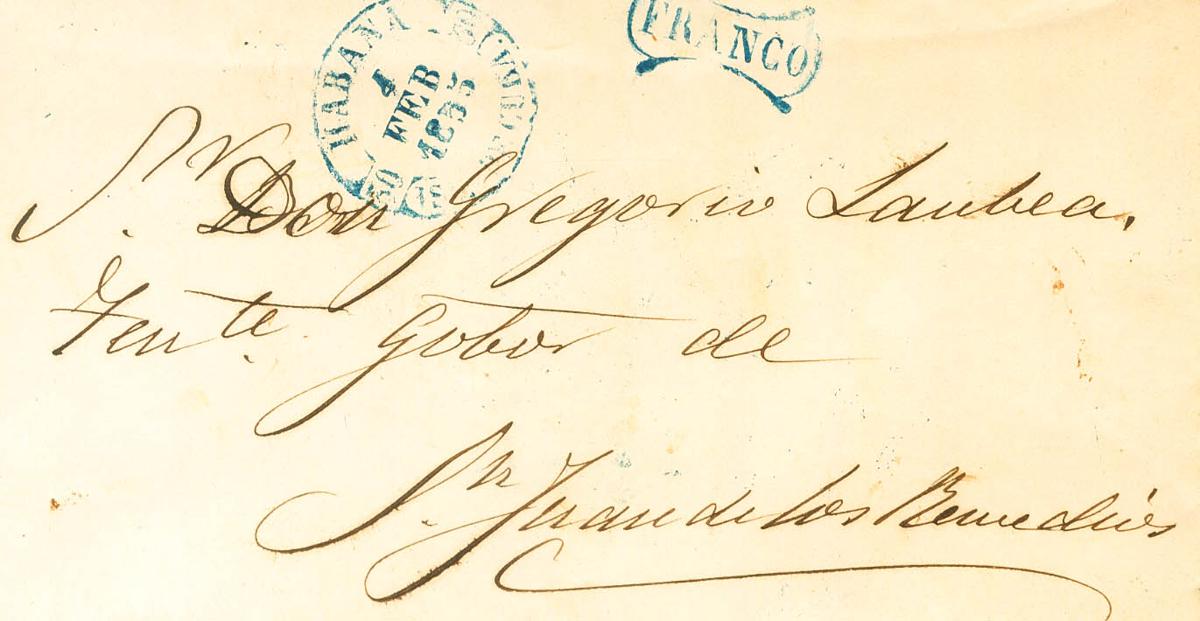 HABANA
4 FEB 1855
FRANCO
Sr. Don Gregorio Laubea.
Tente. Gobor de
Sn. Juan de los Remedios